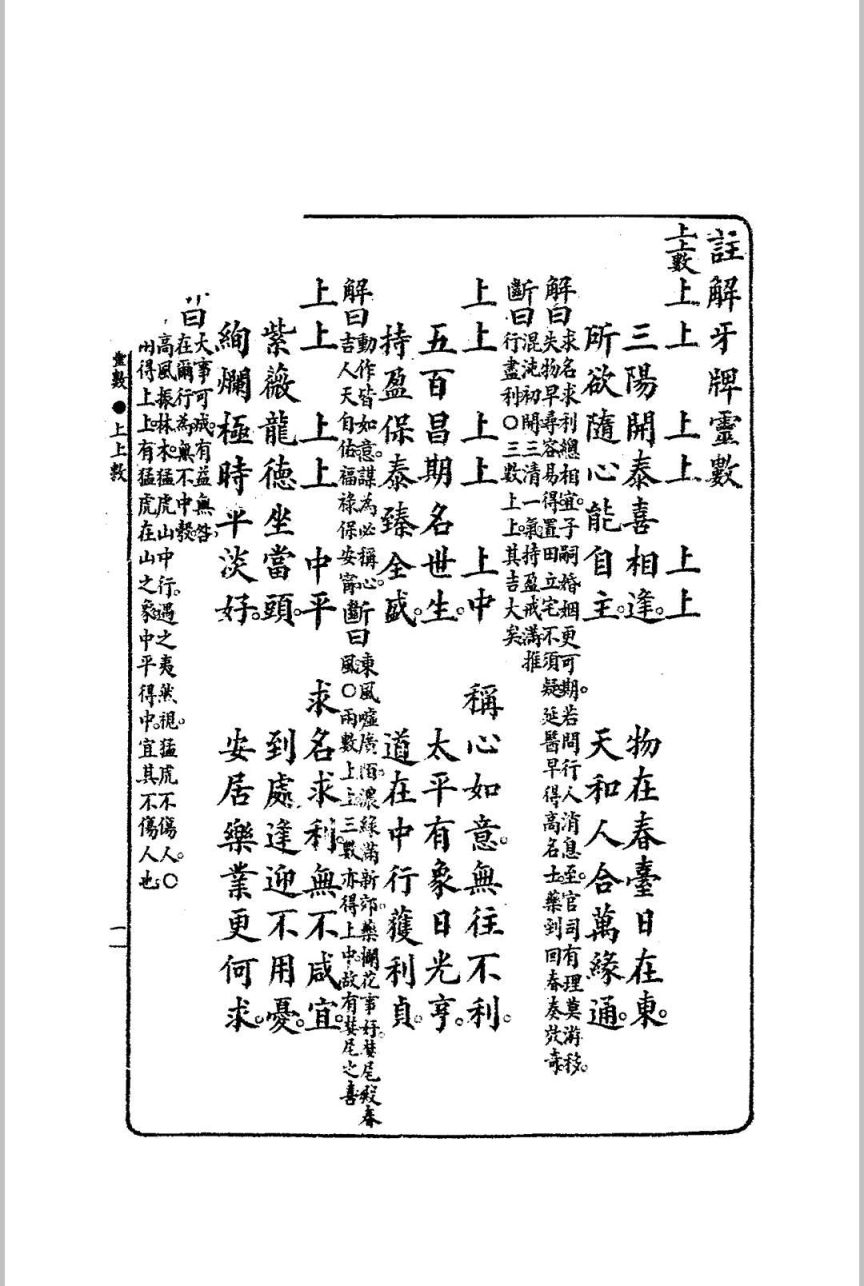 註解牙牌靈數
上上數
上上　上上　上上
三陽開泰喜相逢。　物在春臺日在東。
所欲隨心能自主。　天和人合萬緣通。
解曰
求名求利總相宜。子嗣婚姻更可期。若問行人消息至。官司有理莫游移。
失物早尋容易得。置田立宅不須疑。延醫早得高名士。藥到回春奏效奇
斷曰
混沌初開三清一氣。持盈戒滿推
行盡利〇三數上上。其吉大矣
上上　上上　上中　稱心如意。無往不利。
五百昌期名世生。　太平有象日光亨。
持盈保泰臻全盛。　道在中行獲利貞。
解曰
動作皆如意。謀為必稱心。
吉人天自佑福祿保安甯
斷曰
東風噓廣陌。濃綠滿新郊。藥欄花事好。婪尾殿春
風〇兩數上上三數亦得上中。故有婪尾之喜
上上　上上　中平　求名求利。無不咸宜。
紫薇龍德坐當頭。　到處逢迎不用憂。
絢爛極時平淡好。　安居樂業更何求。
曰
大事可成。有益無咎。
在爾行為。無不中彀。
高風振林木。猛虎山中行。遇之夷然視。猛虎不傷人。〇
兩得上上。有猛虎在山之象中平得中。宜其不傷人也
靈數●上上數　一